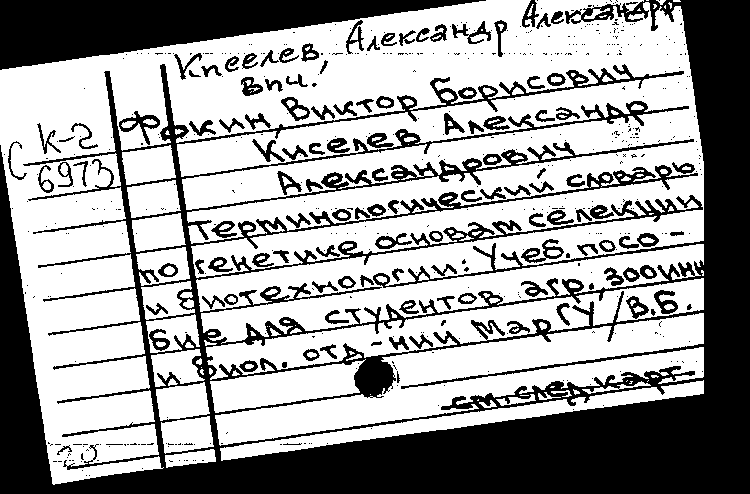 Киселев, Александр Александро
впч.
С К-2
6973
Фокин, Виктор Борисович,
Киселев, Александр
Александрович
Терминологический словарь
по генетике, основам селекции
и биотехнологии: Учеб. посо -
бие для студентов агр., зооинж
и биол. отд-ний МарГУ / В.Б.
см. след. карт.
20